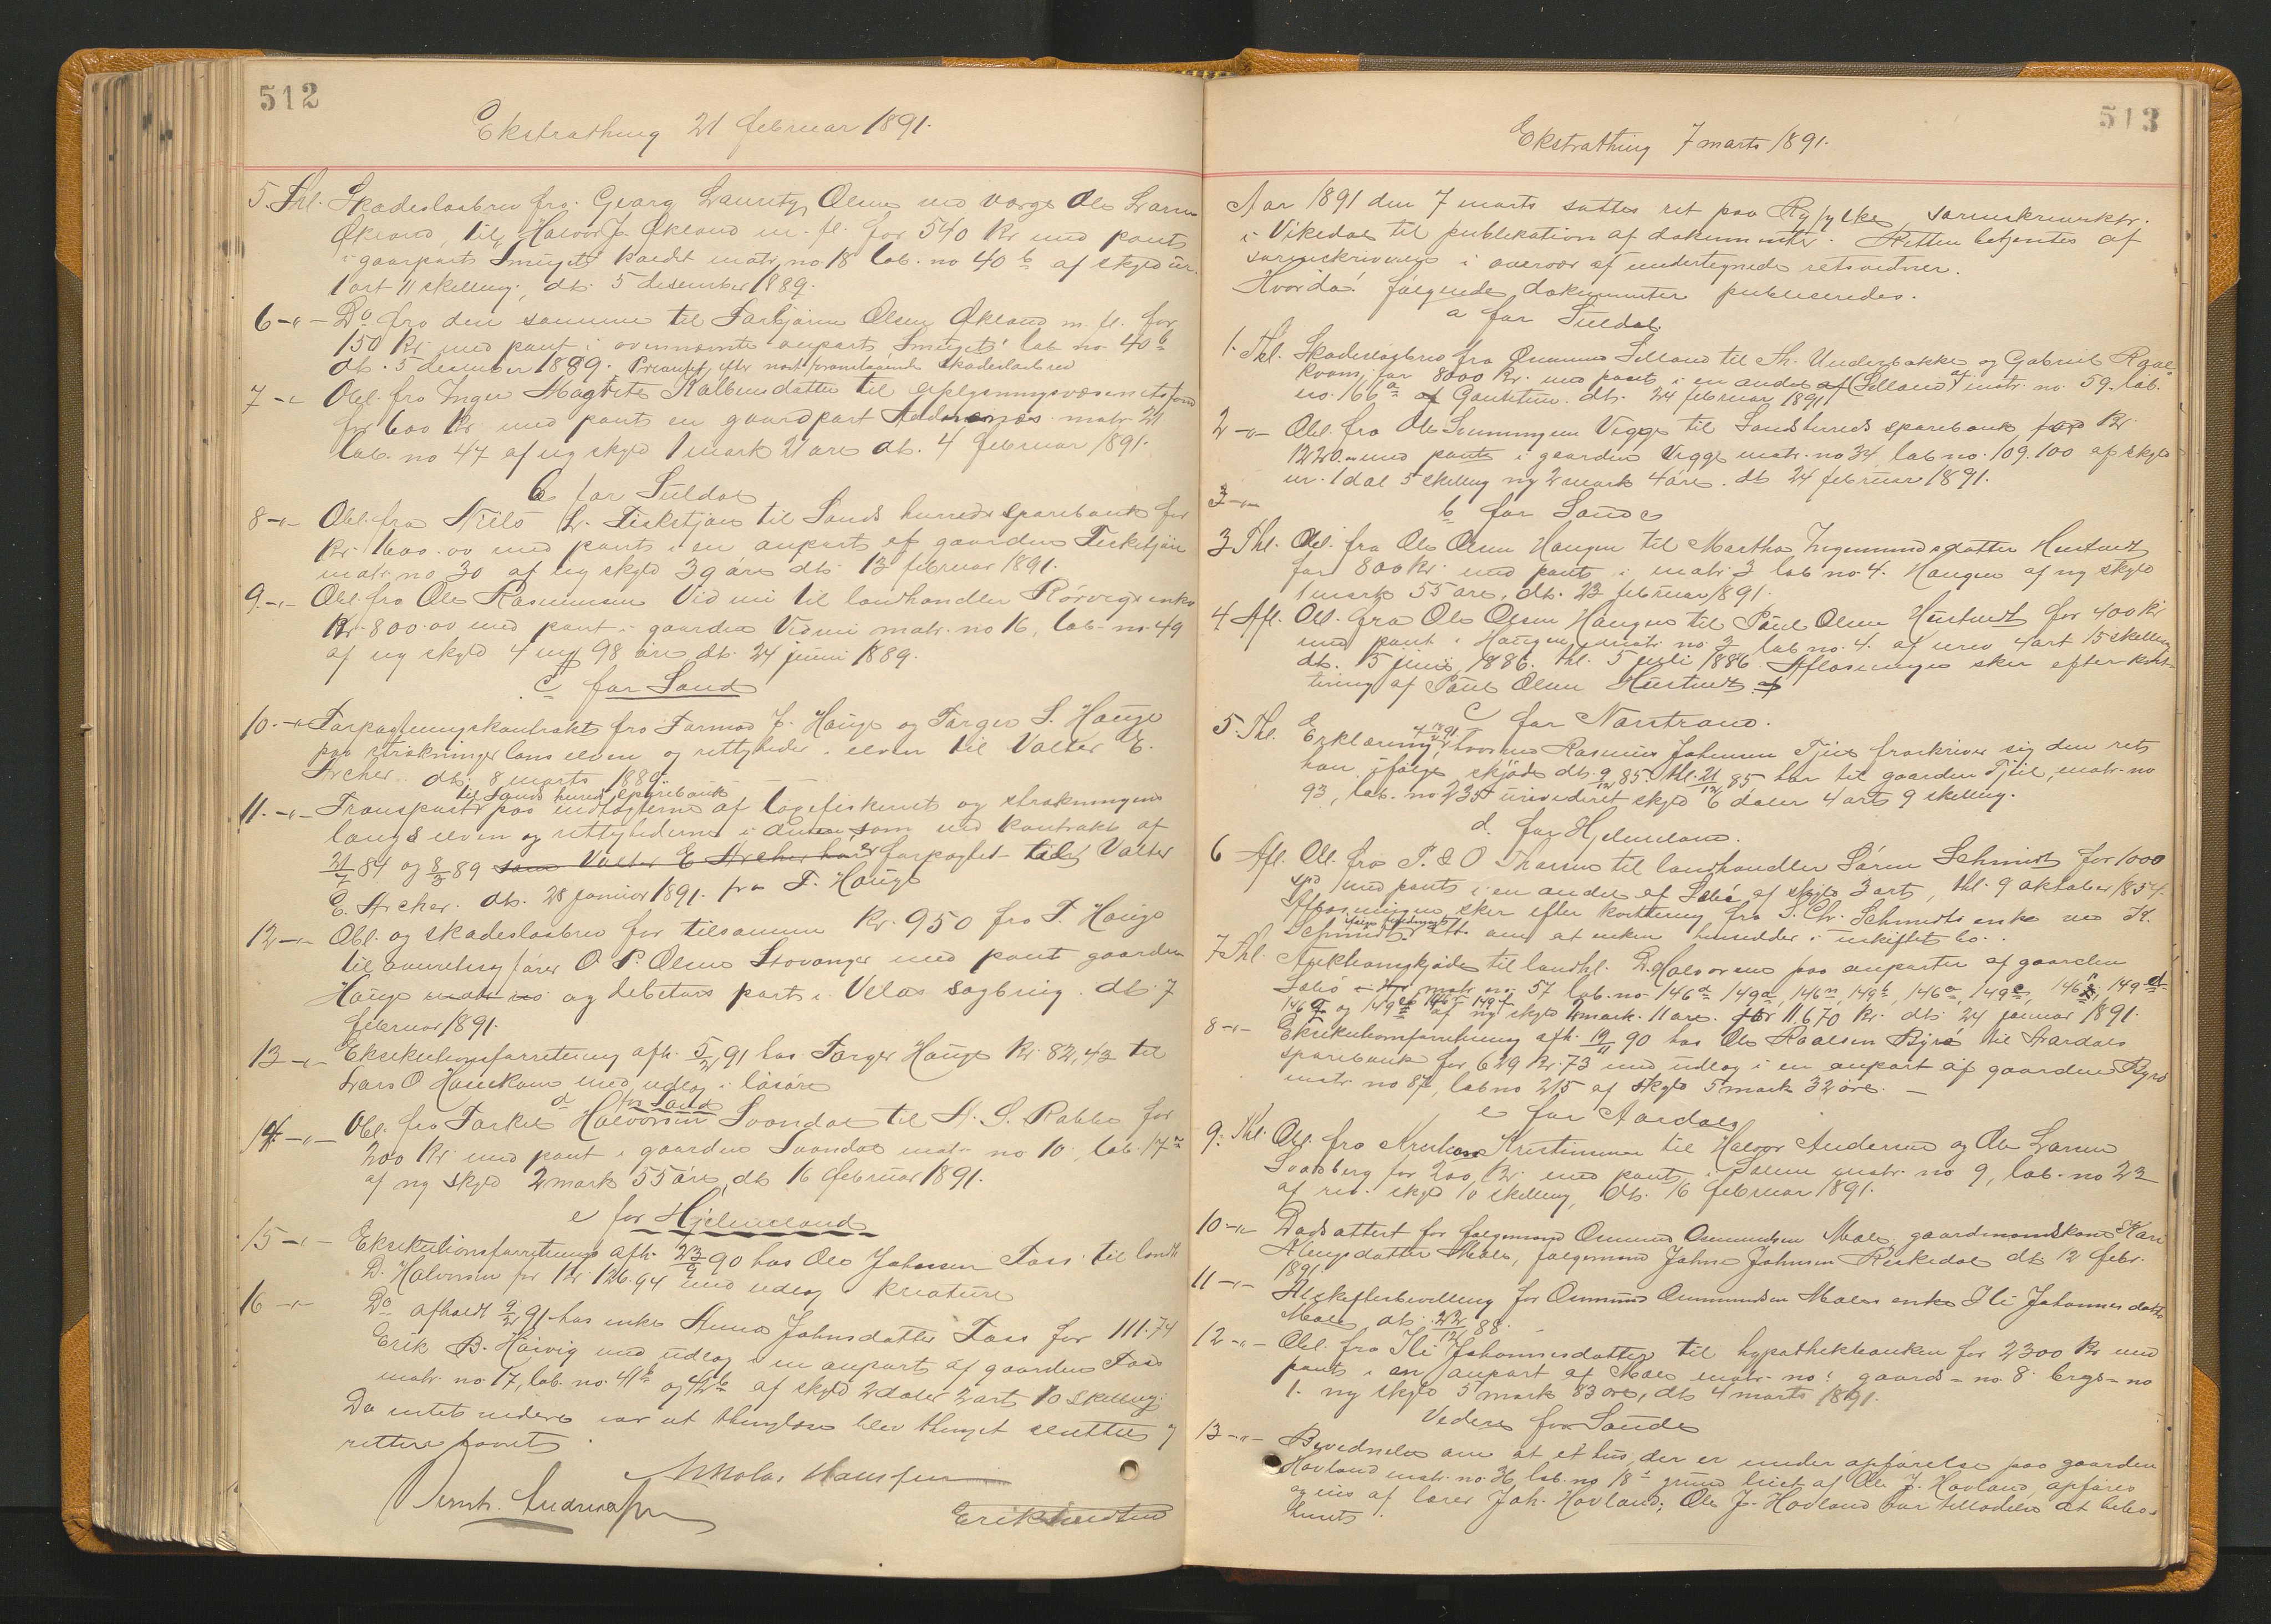 512
Ekstrathing 21 februar 1891.
5. Thl. Skadeslosbrev fra Georg Lauritz Olsen med verge Ole Larsen
Økland, til Halvor J. Økland m. fl. for 540 Kr med pant
i gaarparts Smuget kaldt matr. no 18 lab. no 40 b af skyld ur.
1 ort 11 skilling, dt. 5 desember 1889.
6 -"- Do fra den samme til Torbjørn Olsen Økland m. fl. for
150 Kr med pant i ovennævnte anparts Smuget lab no 40 b
dt. 5 desember 1889. Prioritet efter næst foranstaaende skadeslosbrev
7 -"- Obl. fra Inger Magrete Kolbensdatter til oplysningsvæsenets fond
for 600 Kr. med pant en gaardpart matr. 21
lab. no 47 af ny skyld 1 mark 21 øre dt. 4 februar 1891.
b for Suldal
8 -"- Obl. fra Nils L. Fisketjøn til Sands herreds sparebank for
Kr. 1600.00 med pant i en anpart af gaarden Fisketjøn
matr. no 30 af ny skyld 39 øre dt. 13 februar 1891.
9 -"- Obl. fra Ole Rasmussen Vidmi til landhandler Rørvigs enke
Kr. 800.00 med pant i gaarden Vidmi matr. no 16, lab. no 49
af ny skyld 4 mk 98 øre dt. 24 juni 1889.
c for Sand
10 -"- Forpagtningskontrakt fra Tormod J. Hauge og Torger S. Hauge
paa strækninger langs elven og rettigheder i elven til Valter E.
Archer dt. 8 marts 1889.
til Sands herreds sparebank
11 -"- Transport paa indtægterne af laxefiskeriet og strækningen
langs elven og rettighederne i denne som ved kontrakt af
21/7 84 og 8/3 89 som Valter E Archer har er forpagtet til Valter
E. Archer. dt. 28 januar 1891. fra T. Hauge
12 -"- Obl. og skadeslosbrev for tilsammen Kr. 950 fra T. Hauge
til overretssagfører O. P. Olsen Stavanger med pant gaarden
Hauge matr no og debitors part i Velas sagbrug. dt. 7
februar 1891.
13 -"- Eksekutionsforretning afh. 5/2 91 hos Torger Hauge Kr. 82,43 til
Lars O med udlæg i løsøre
d for Sand
14 -"- Obl. fra Torkel Halvorsen Svandal til A. S. Rabbe for
200 Kr med pant i gaarden Svandal matr no 10, lab. 17 a
af ny skyld 2 mark 55 øre, dt 16 februar 1891.
e for Hjelmeland
15 -"- Eksekutionsforretning afh. 23/9 90 hos Ole Johnsen Foss til landh
D. Halvorsen for Kr. 126.94 med udlæg kreature
16 -"- Do afholdt 9/2 91 hos enke Anna Johnsdatter Foss for 111.74
Erik B. Høivig med udlæg i en anpart af gaarden Foss
matr. no. 17, lab. no. 41 b og 42 b af skyld 2 daler 3 ort 10 skilling.
Da intet videre var at thinglæse blev thinget sluttet og
retten hævet.
Nikolai Hansen
Bernt Andreassen
Erik Knudsen
513
Ekstrathing 7 marts 1891.
Aar 1891 den 7 marts sattes ret paa Ryfylke sorenskriverktr.
i Vikedal til publikation af dokumenter. Retten betjentes af
sorenskriveren i overvær af undertegnede retsvidner.
Hvorda! følgende dokumenter publiceredes.
a for Suldal
1. Thl. Skadeslosbrev fra Ommund Selland til Th. Underbakke og Gabriel Roal-
kvam for 8000 Kr. med pant i en andel af Selland af matr. no. 59. lab.
no. 166 a af Gautetun. dt. 24 februar 1891.
2 -"- Obl. fra Ole Vigge til Sands herreds sparebank for Kr.
1220.- med pant i gaarden Vigge matr. no 34 lab no. 109.100 af skyld
ur. 1 dal 5 skilling ny 2 mark 4 øre. dt 24 februar 1891.
3 -"-
b for Sand
3 Thl. Obl. fra Ole Olsen Haugen til Martha Ingemundsdatter Hustveit
for 800 Kr. med pant i matr. 3 lab no. 4. Haugen af ny skyld
1 mark 55 øre, dt. 23 februar 1891.
4 Afl. Obl. fra Ole Olsen Haugen til Paul Olsen Hustveit for 400 Kr
med pant i Haugen matr no. 3 lab no. 4. af urev 4 ort 15 skilling
dt. 15 juni 1886. thl. 5 juli 1886. Aflæsningen sker efter kvit-
tering af Paul Olsen Hustveit.
c for Nærstrand.
5. Thl. Erklæring 4/2 91 hvorved Rasmus Johnsen Tjul fraskriver sig den ret
han ifølge skjøde dt. 9/12 85 thl. 21/12 85 har til gaarden Tjul, matr. no
93, lab. no 235 urevideret skyld 6 daler 4 ort 9 skilling.
d. for Hjelmeland.
6 Afl. Obl. fra P. & O Thorsen til landhandler Søren Schmidt for 1000
spd med pant i en andel af Sæbø af skyld 3 ort, thl. 9 oktober 1854.
Aflæsningen sker efter kvittering fra S. Chr. Schmidts enke ved K.
Schmidt att. om at enken hensidder i uskiftet bo.
7 Thl. Auktionsskjøde til landhl. D. Halvorsen paa anparter af gaarden
Sæbø matr. no. 57 lab. no. 146 d 149 a, 146 n, 149 b, 146 o, 149 c, 146 p, 149 d
146 q og 149 e 146 r 149 f af ny skyld 2 mark. 11 øre. for 11,670 Kr. dt. 24 januar 1891.
8 -"- Eksekutionsforretning afh. 12/11 90 hos Ole Roalsen Byrø til Aardals
sparebank for 629 Kr. 73 med udlæg i en anpart af gaarden Byrø
matr no 87, lab no 215 af skyld 5 mark 32 øre.
e for Aardal
9. Thl. Obl. fra Kristensen til Halvor Andersen og Ole Larsen
Svadberg for 200 Kr. med pant i matr. no 9, lab. no 23
af rev. skyld 10 skilling, dt. 16 februar 1891.
10 -"- Dødsattest for følgemand Ommund Ommundsen Mæle, gaardmandskone Kari
Mæle, følgemand John Johnsen Riskedal dt 12 febr.
1891.
11 -"- Uskiftetbevilling for Ommund Ommundsen Mæles enke Ili Johannesdatter
Mæle dt. 22/12 88.
12 -"- Obl. fra Ili Johannesdatter til hypothekbanken for 2300 Kr med
pant i en anpart af Mæle matr. no: gaards-no. 8 brgs-no
1. ny skyld 5 mark 83 øre, dt 4 marts 1891.
Videre for Sand
13 -"- Bevidnelse om at et hus, der er under opførelse paa gaarden
Hovland matr. no 36 lab. no 18 grund leiet af Ole J. Hovland, opføres
og eies af lærer Joh. Hovland; Ole J. Hovland har tilladelse at bebo
huset.